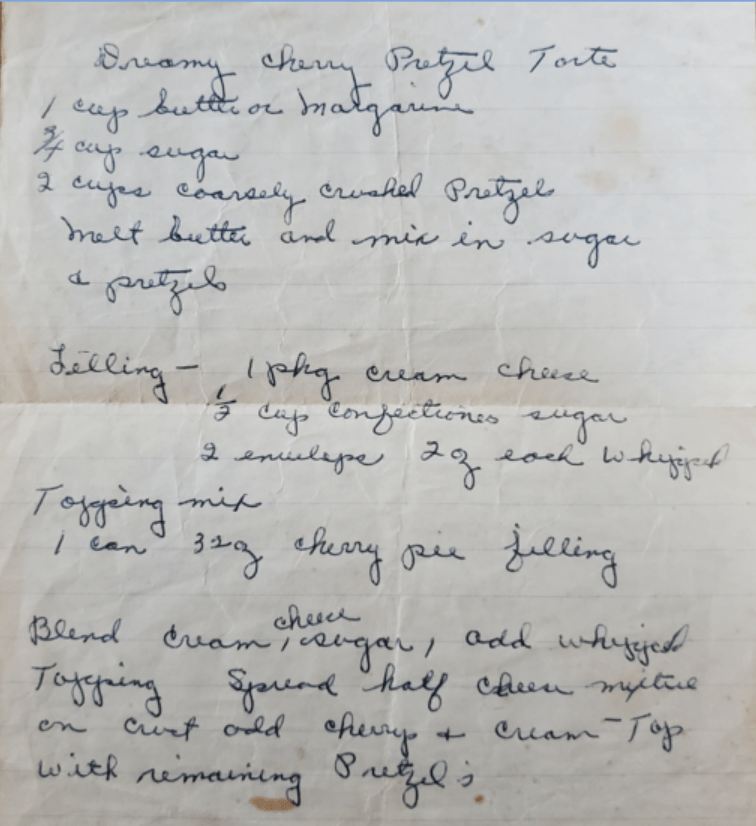 Dreamy cherry Pretzel Torte
1 cup butter or Margarine
3/4 cup sugar
2 cups coarsely crushed Pretzel
Melt butter and mix in sugar
& pretzels
Filling - 1 pkg cream cheese
1/2 cup confectiones sugar
2 enveleps 2 oz each Whipped
Topping mix
1 can 32 oz cherry pie filling
Blend cream cheese, sugar, add whipped
Topping Spread half cheese mixture
on crust add cherry & cream - Top
with remaining Pretzel's